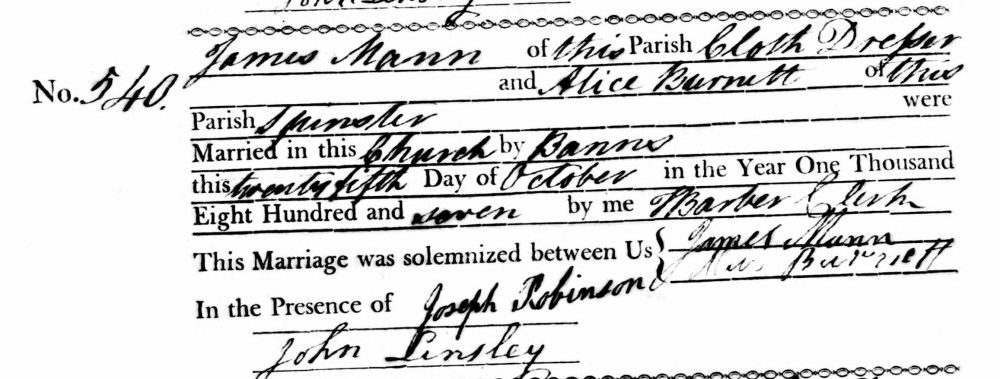 James Mann of this Parish Cloth Dresser
No. 540. and Alice Burnett of this
Parish Spinster were
Married in this Church by Banns
this twenty fifth Day of October in the Year One Thousand
Eight Hundred and seven by me Barber Clerk
This Marriage was solemnized between Us James Mann
Burnett
In the Presence of Joseph Robinson
John Linsley